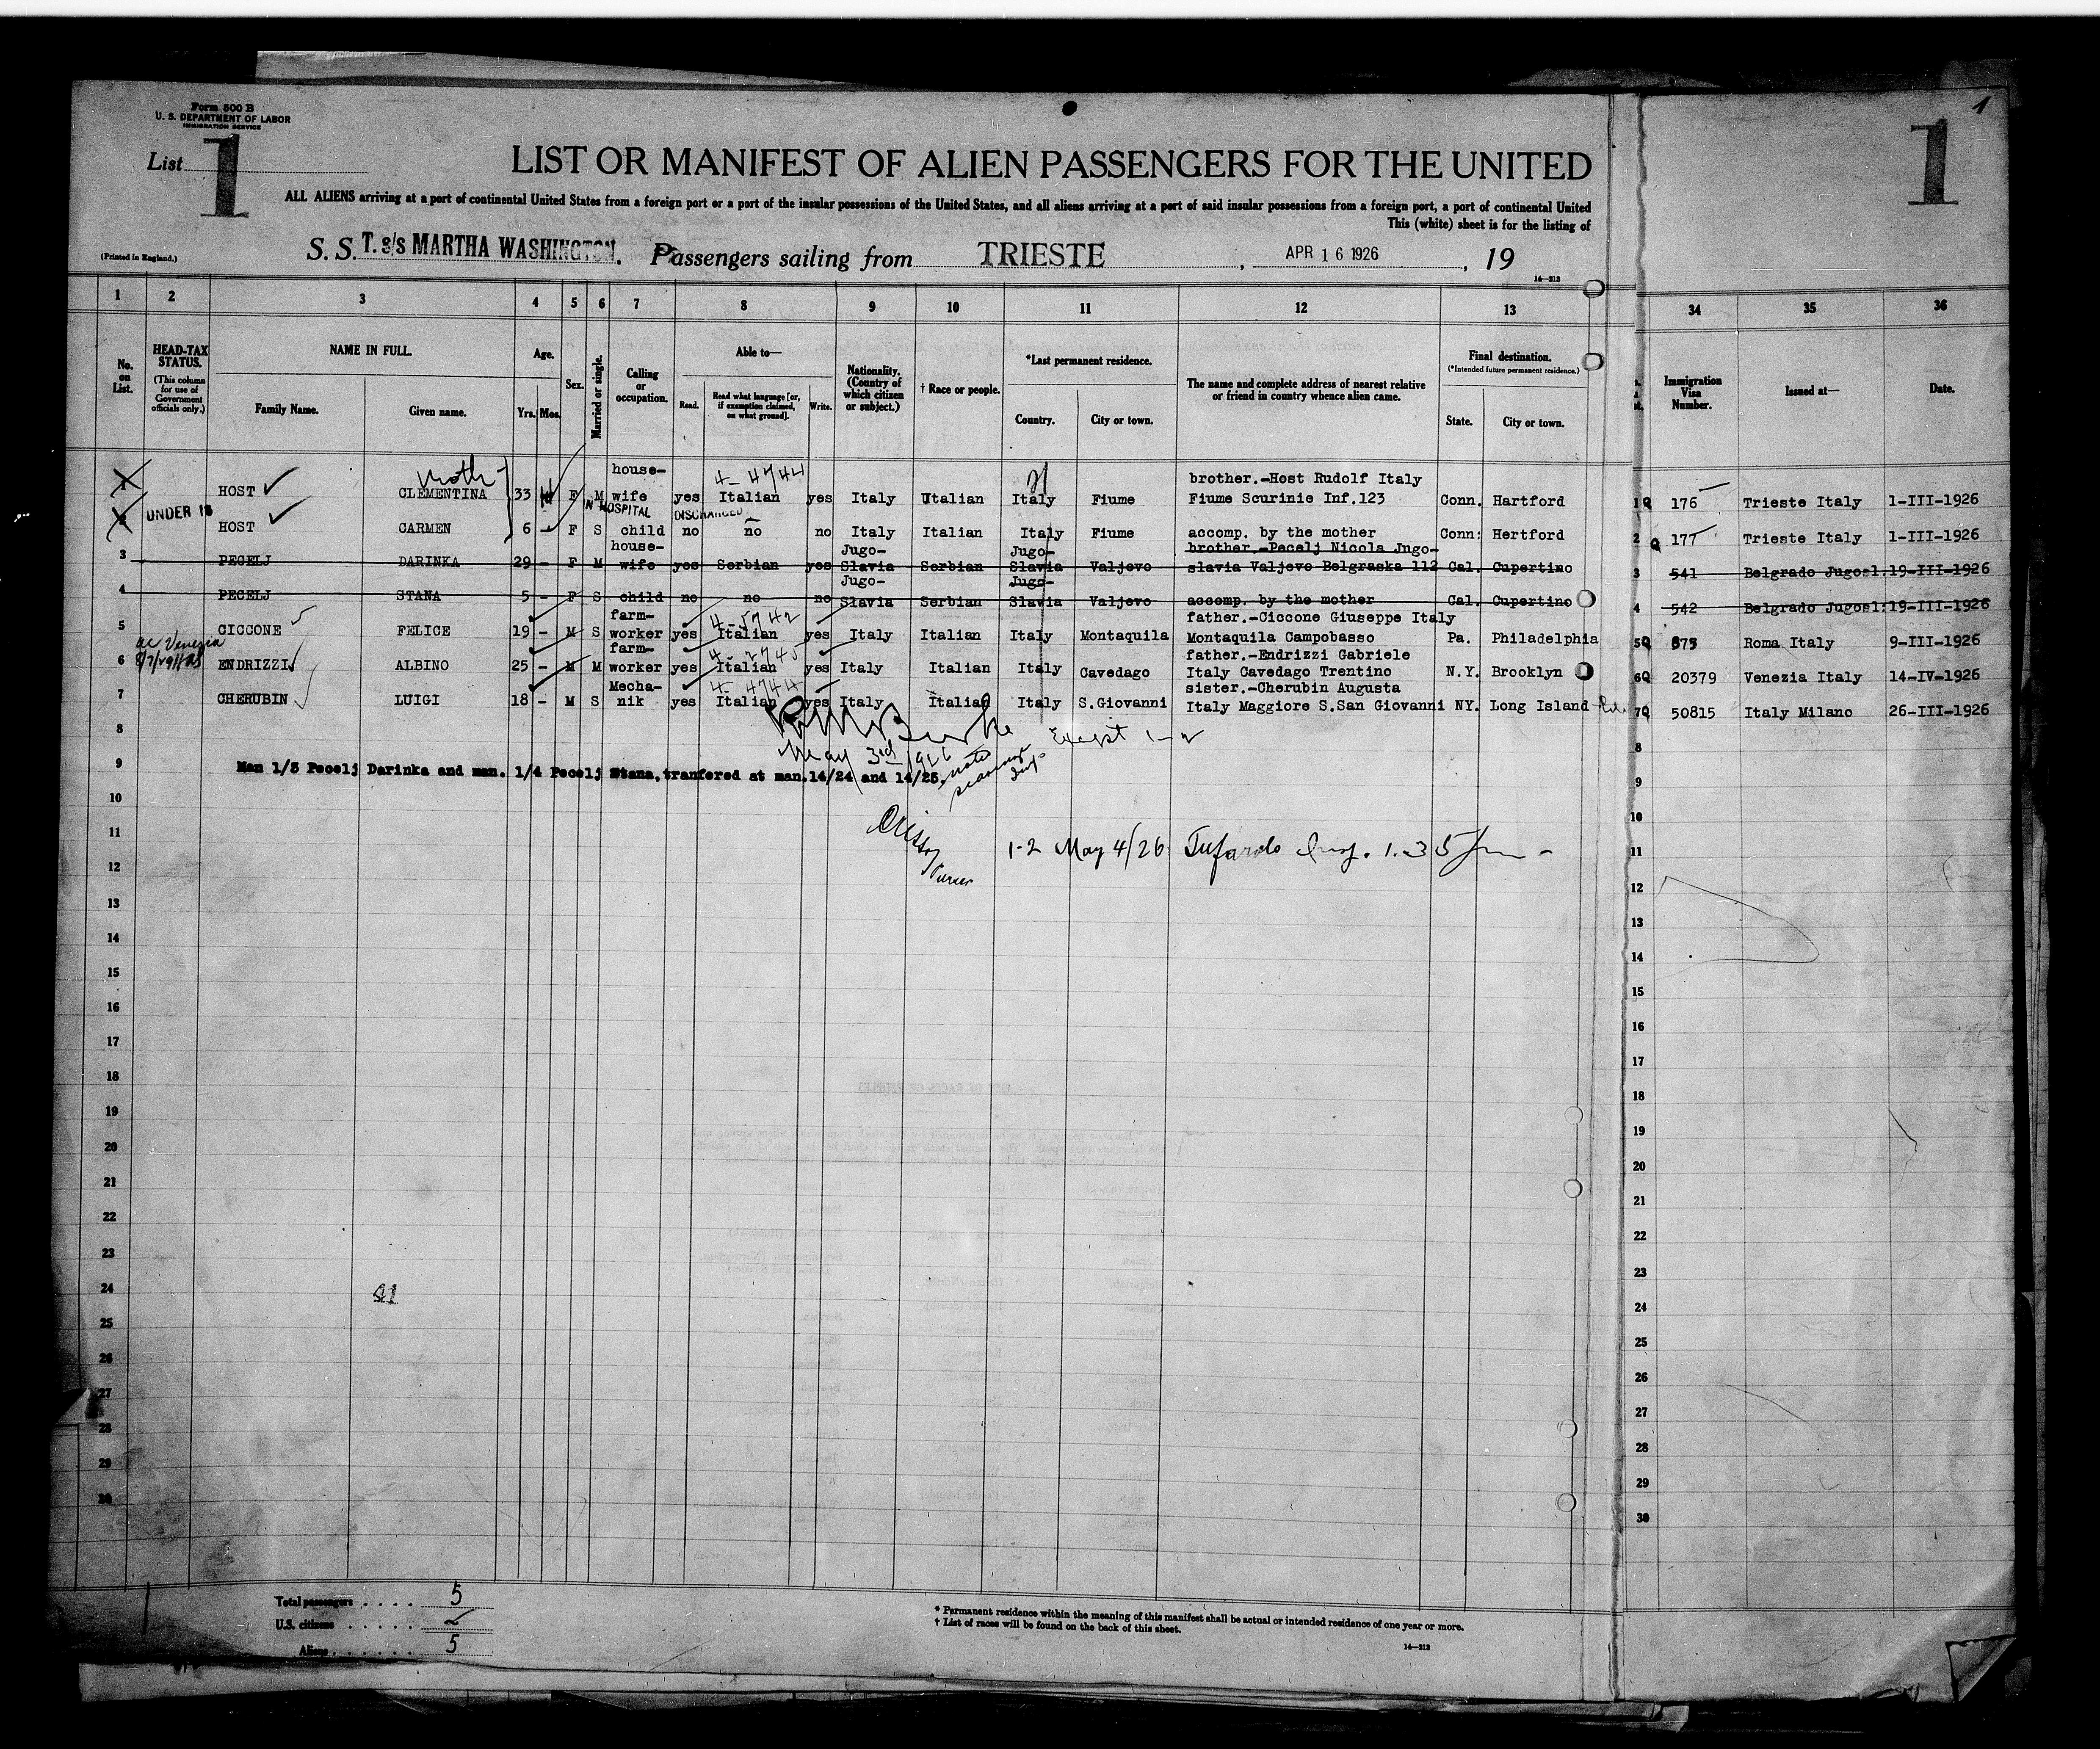 Form 500 B
U. S. DEPARTMENT OF LABOR
IMMIGRATION SERVICE
1
1
1
List
LIST OR MANIFEST OF ALIEN PASSENGERS FOR THE UNITED
ALL ALIENS arriving at a port of continental United States from a foreign port or a port of the insular possessions of the United States, and all aliens arriving at a port of said insular possessions from a foreign port, a port of continental United
This (white) sheet is for the listing of
(Printed in England.)
S. S. T. s/s MARTHA WASHINGTON. Passengers sailing from TRIESTE, APR 16 1926, 19
14—213
1 2 3 4 5 6 7 8 9 10 11 12 13 34 35 36
No. on List.
HEAD-TAX STATUS.
(This column for use of Government officials only.)
NAME IN FULL.
Family Name. Given name.
Age.
Yrs. Mos.
Sex.
Married or single.
Calling or occupation.
Able to—
Read. Read what language [or, if exemption claimed, on what ground]. Write.
Nationality. (Country of which citizen or subject.)
† Race or people.
*Last permanent residence.
Country. City or town.
The name and complete address of nearest relative or friend in country whence alien came.
Final destination.
(*Intended future permanent residence.)
State. City or town.
Immigration Visa Number.
Issued at—
Date.
Moth
house- 4-4744 brother.-Host Rudolf Italy
1 HOST CLEMENTINA 33 F M wife yes Italian yes Italy Italian Italy Fiume Fiume Scurinie Inf.123 Conn. Hartford 1 176 Trieste Italy 1-III-1926
UNDER 16 IN HOSPITAL DISCHARGED
2 HOST CARMEN 6 - F S child no no no Italy Italian Italy Fiume accomp. by the mother Conn: Hertford 2 177 Trieste Italy 1-III-1926
house- Jugo- Jugo- brother.-Pecelj Nicola Jugo-
3 PECELJ DARINKA 29 - F M wife yes Serbian yes Slavia Serbian Slavia Valjevo slavia Valjevo Belgraska 112 Cal. Cupertino 3 541 Belgrado Jugosl. 19-III-1926
Jugo- Jugo-
4 PECELJ STANA 5 - F S child no no no Slavia Serbian Slavia Valjevo accomp. by the mother Cal. Cupertino 4 542 Belgrado Jugosl: 19-III-1926
farm- 4-5742 father.-Ciccone Giuseppe Italy
5 CICCONE FELICE 19 - M S worker yes Italian yes Italy Italian Italy Montaquila Montaquila Campobasso Pa. Philadelphia 5 875 Roma Italy 9-III-1926
Venezia
farm- 4-2745 father.-Endrizzi Gabriele
6 ENDRIZZI ALBINO 25 - M M worker yes Italian yes Italy Italian Italy Cavedago Italy Cavedago Trentino N.Y. Brooklyn 6 20379 Venezia Italy 14-IV-1926
Mecha- 4-4744 sister.-Cherubin Augusta
7 CHERUBIN LUIGI 18 - M S nik yes Italian yes Italy Italian Italy S.Giovanni Italy Maggiore S.San Giovanni NY. Long Island 7 50815 Italy Milano 26-III-1926
8 8
May 3rd 1926 Except 1-2
9 Man 1/3 Pecelj Darinka and man. 1/4 Pecelj Stana, tranfered at man.14/24 and 14/25. 9
10 10
11 1-2 May 4/26 Tufardo Insp. 1.35 pm - 11
Purser
12 12
13 13
14 14
15 15
16 16
17 17
18 18
19 19
20 20
21 21
22 22
23 23
24 24
25 25
26 26
27 27
28 28
29 29
30 30
Total passengers . . . . 5
U.S. citizens . . . . .
Aliens . . . . . . 5
* Permanent residence within the meaning of this manifest shall be actual or intended residence of one year or more.
† List of races will be found on the back of this sheet.
14—213